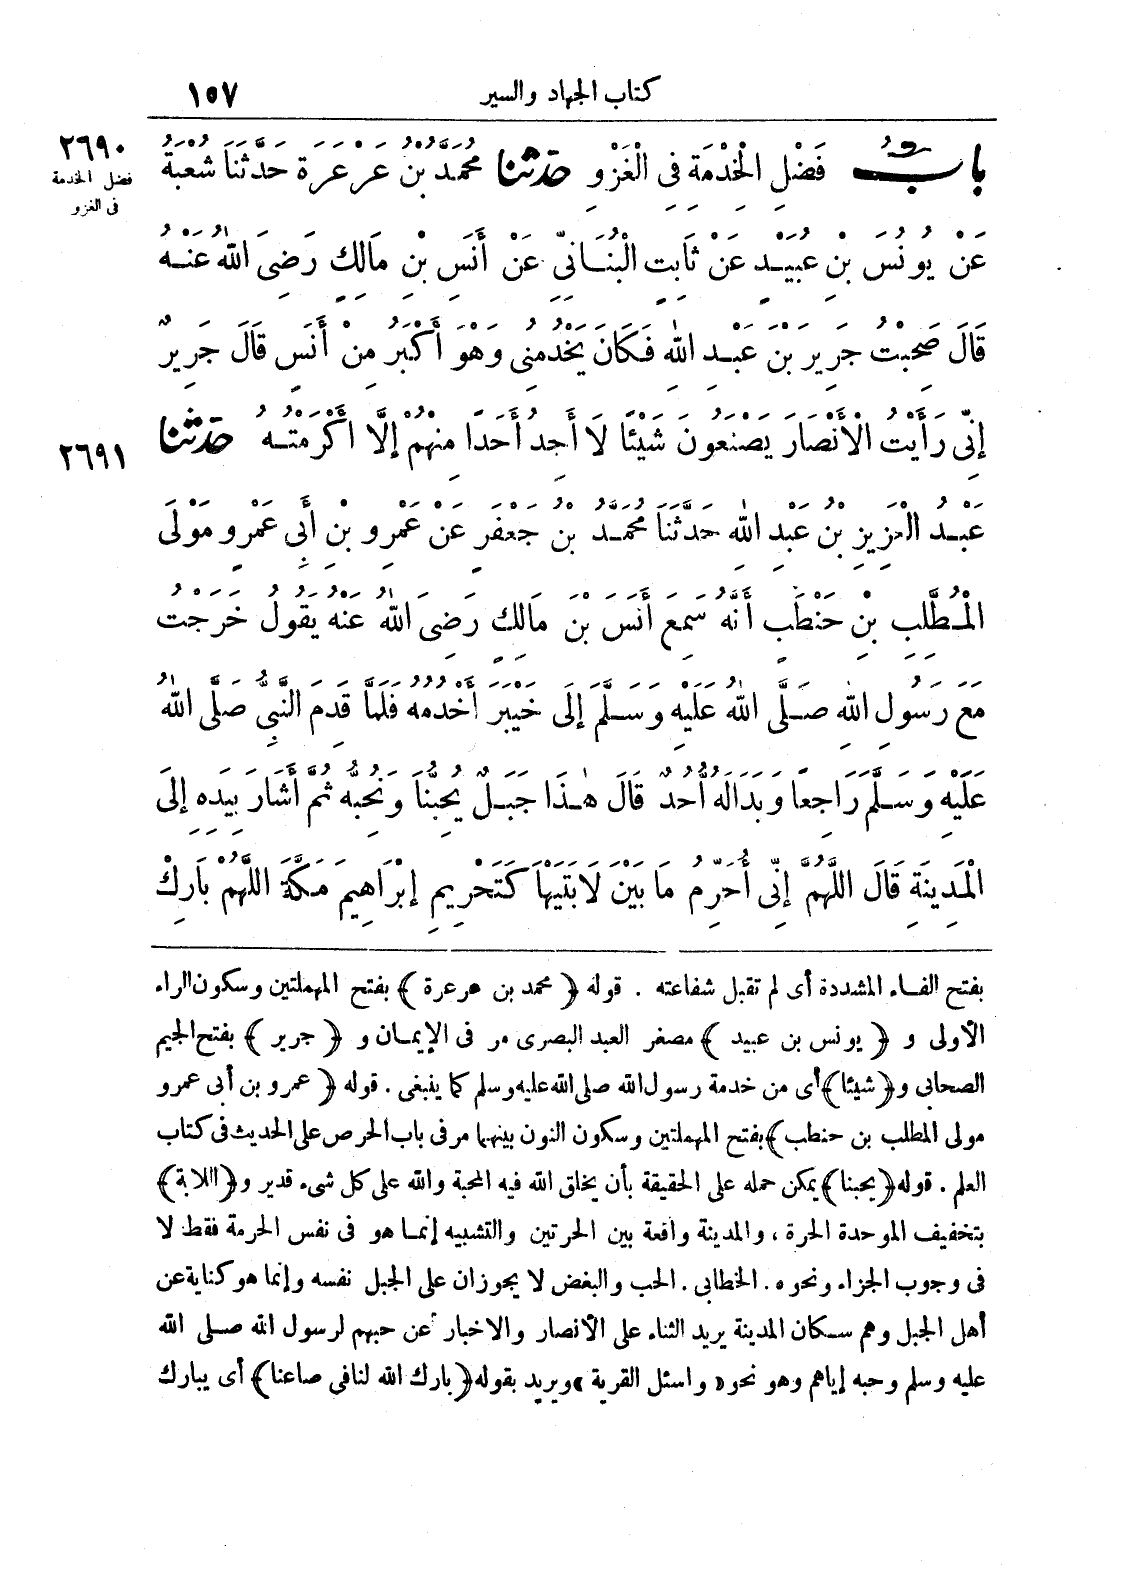 كتاب الجهاد والسير ١٥٧
بَابُ فَضْلِ الْخِدْمَةِ فِى الْغَزْوِ حَدَّثَنَا مُحَمَّدُ بْنُ عَرْعَرَةَ حَدَّثَنَا شُعْبَةُ
٢٦٩٠
فضل الخدمة
فى الغزو
عَنْ يُونُسَ بْنِ عُبَيْدٍ عَنْ ثَابِتٍ الْبُنَانِىِّ عَنْ أَنَسِ بْنِ مَالِكٍ رَضِىَ اللّٰهُ عَنْهُ
قَالَ صَحِبْتُ جَرِيرَ بْنَ عَبْدِ اللّٰهِ فَكَانَ يَخْدُمُنِى وَهْوَ أَكْبَرُ مِنْ أَنَسٍ قَالَ جَرِيرٌ
إِنِّى رَأَيْتُ الْأَنْصَارَ يَصْنَعُونَ شَيْئًا لَا أَجِدُ أَحَدًا مِنْهُمْ إِلَّا أَكْرَمْتُهُ حَدَّثَنَا
٢٦٩١
عَبْدُ الْعَزِيزِ بْنُ عَبْدِ اللّٰهِ حَدَّثَنَا مُحَمَّدُ بْنُ جَعْفَرٍ عَنْ عَمْرِو بْنِ أَبِى عَمْرٍو مَوْلَى
الْمُطَّلِبِ بْنِ حَنْطَبٍ أَنَّهُ سَمِعَ أَنَسَ بْنَ مَالِكٍ رَضِىَ اللّٰهُ عَنْهُ يَقُولُ خَرَجْتُ
مَعَ رَسُولِ اللّٰهِ صَلَّى اللّٰهُ عَلَيْهِ وَسَلَّمَ إِلَى خَيْبَرَ أَخْدُمُهُ فَلَمَّا قَدِمَ النَّبِىُّ صَلَّى اللّٰهُ
عَلَيْهِ وَسَلَّمَ رَاجِعًا وَبَدَا لَهُ أُحُدٌ قَالَ هٰذَا جَبَلٌ يُحِبُّنَا وَنُحِبُّهُ ثُمَّ أَشَارَ بِيَدِهِ إِلَى
الْمَدِينَةِ قَالَ اللَّهُمَّ إِنِّى أُحَرِّمُ مَا بَيْنَ لَابَتَيْهَا كَتَحْرِيمِ إِبْرَاهِيمَ مَكَّةَ اللَّهُمَّ بَارِكْ
بفتح الفاء المشددة أى لم تقبل شفاعته . قوله ﴿ محمد بن عرعرة ﴾ بفتح المهملتين وسكون الراء
الأولى و ﴿ يونس بن عبيد ﴾ مصغر العبد البصرى مر فى الإيمان و ﴿ جرير ﴾ بفتح الجيم
الصحابى و﴿شيئا﴾أى من خدمة رسول الله صلى الله عليه وسلم كما ينبغى . قوله ﴿ عمرو بن أبى عمرو
مولى المطلب بن حنطب﴾بفتح المهملتين وسكون النون بينهما مر فى باب الحرص على الحديث فى كتاب
العلم . قوله﴿يحبنا﴾يمكن حمله على الحقيقة بأن يخلق الله فيه المحبة والله على كل شىء قدير و﴿اللابة﴾
بتخفيف الموحدة الحرة ، والمدينة واقعة بين الحرتين والتشبيه إنما هو فى نفس الحرمة فقط لا
فى وجوب الجزاء ونحوه . الخطابى . الحب والبغض لا يجوزان على الجبل نفسه وإنما هو كناية عن
أهل الجبل وهم سكان المدينة يريد الثناء على الأنصار والاخبار عن حبهم لرسول الله صلى الله
عليه وسلم وحبه إياهم وهو نحو« واسئل القرية »ويريد بقوله﴿بارك الله لنا فى صاعنا﴾ أى يبارك